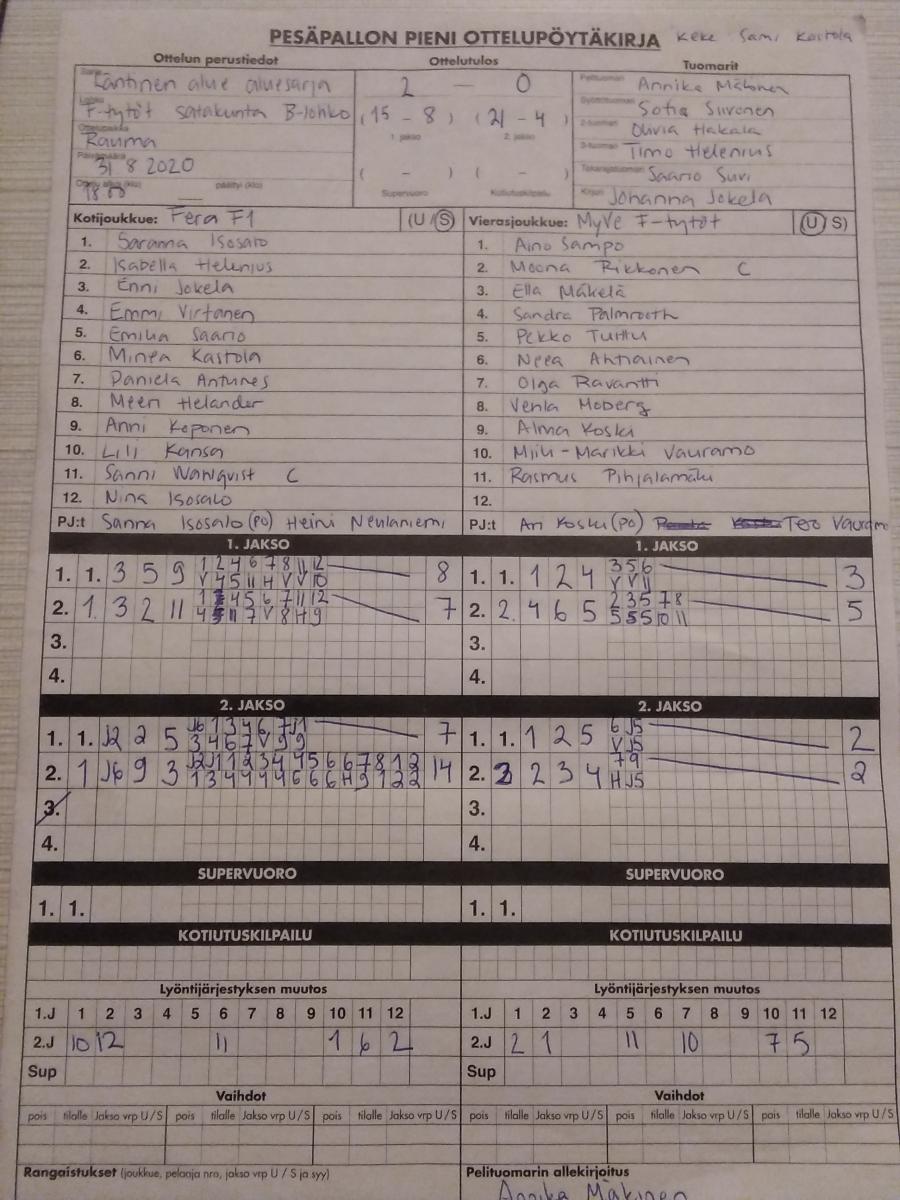 PESÄPALLON PIENI OTTELUPÖYTÄKIRJA Keke Sami Kastola
Ottelun perustiedot Ottelutulos Tuomarit
Läntinen alue aluesarja 2 — 0 Pelituomari Annika Mäkinen
F-tytöt satakunta B-lohko (15 - 8) (21 - 4) Syöttötuomari Sofia Siivonen
1. jakso 2. jakso 2-tuomari Olivia Hakala
Ottelupaikka Rauma 3-tuomari Timo Helenius
Päivämäärä 31 8 2020 ( - ) ( - ) Takarajatuomari Saario Suvi
Ottelu alkoi (klo) 18 00 päättyi (klo) Supervuoro Kotiutuskilpailu Kirjuri Johanna Jokela
Kotijoukkue: Fera F1 (U/S) Vierasjoukkue: MyVe F-tytöt (U S)
1. Saranna Isosalo 1. Aino Sampo
2. Isabella Helenius 2. Moona Rikkonen C
3. Enni Jokela 3. Ella Mäkelä
4. Emmi Virtanen 4. Sandra Palmrooth
5. Emilia Saario 5. Pekko Turttu
6. Minea Kastola 6. Neea Ahtiainen
7. Daniela Antunes 7. Olga Ravantti
8. Meeri Helander 8. Venla Moberg
9. Anni Koponen 9. Alma Koski
10. Lili Kansa 10. Miili-Marikki Vauramo
11. Sanni Wahlqvist C 11. Rasmus Pihjalamäki
12. Nina Isosalo 12.
PJ:t Sanna Isosalo (PO) Heini Neulaniemi PJ:t Ari Koski (PO) Teo Vauramo
1. JAKSO 1. JAKSO
1. 1. 3 5 9 1 2 4 6 7 8 11 12 8 1. 1. 1 2 4 3 5 6 3
V 4 5 11 H V V 10 V V 11
2. 1 3 2 11 7 2. 2. 4 6 5 2 3 5 7 8 5
5 5 5 10 11
3. 3.
4. 4.
2. JAKSO 2. JAKSO
1. 1. J2 2 5 J6 1 3 4 6 7 J1 7 1. 1. 1 2 5 6 J5 2
3 4 6 7 V 9 9 V J5
2. 1 J6 9 3 J2 J1 1 2 3 4 4 5 6 6 7 8 1 2 14 2. 2 3 4 7 9 2
1 3 4 4 4 4 6 6 6 H 9 1 2 2 H J5
3. 3.
4. 4.
SUPERVUORO SUPERVUORO
1. 1. 1. 1.
KOTIUTUSKILPAILU KOTIUTUSKILPAILU
Lyöntijärjestyksen muutos Lyöntijärjestyksen muutos
1.J 1 2 3 4 5 6 7 8 9 10 11 12 1.J 1 2 3 4 5 6 7 8 9 10 11 12
2.J 10 12 11 1 6 2 2.J 2 1 11 10 7 5
Sup Sup
Vaihdot Vaihdot
pois tilalle Jakso vrp U / S pois tilalle Jakso vrp U / S pois tilalle Jakso vrp U / S pois tilalle Jakso vrp U / S pois tilalle Jakso vrp U / S pois tilalle Jakso vrp U / S
Rangaistukset (joukkue, pelaaja nro, jakso vrp U / S ja syy) Pelituomarin allekirjoitus
Annika Mäkinen